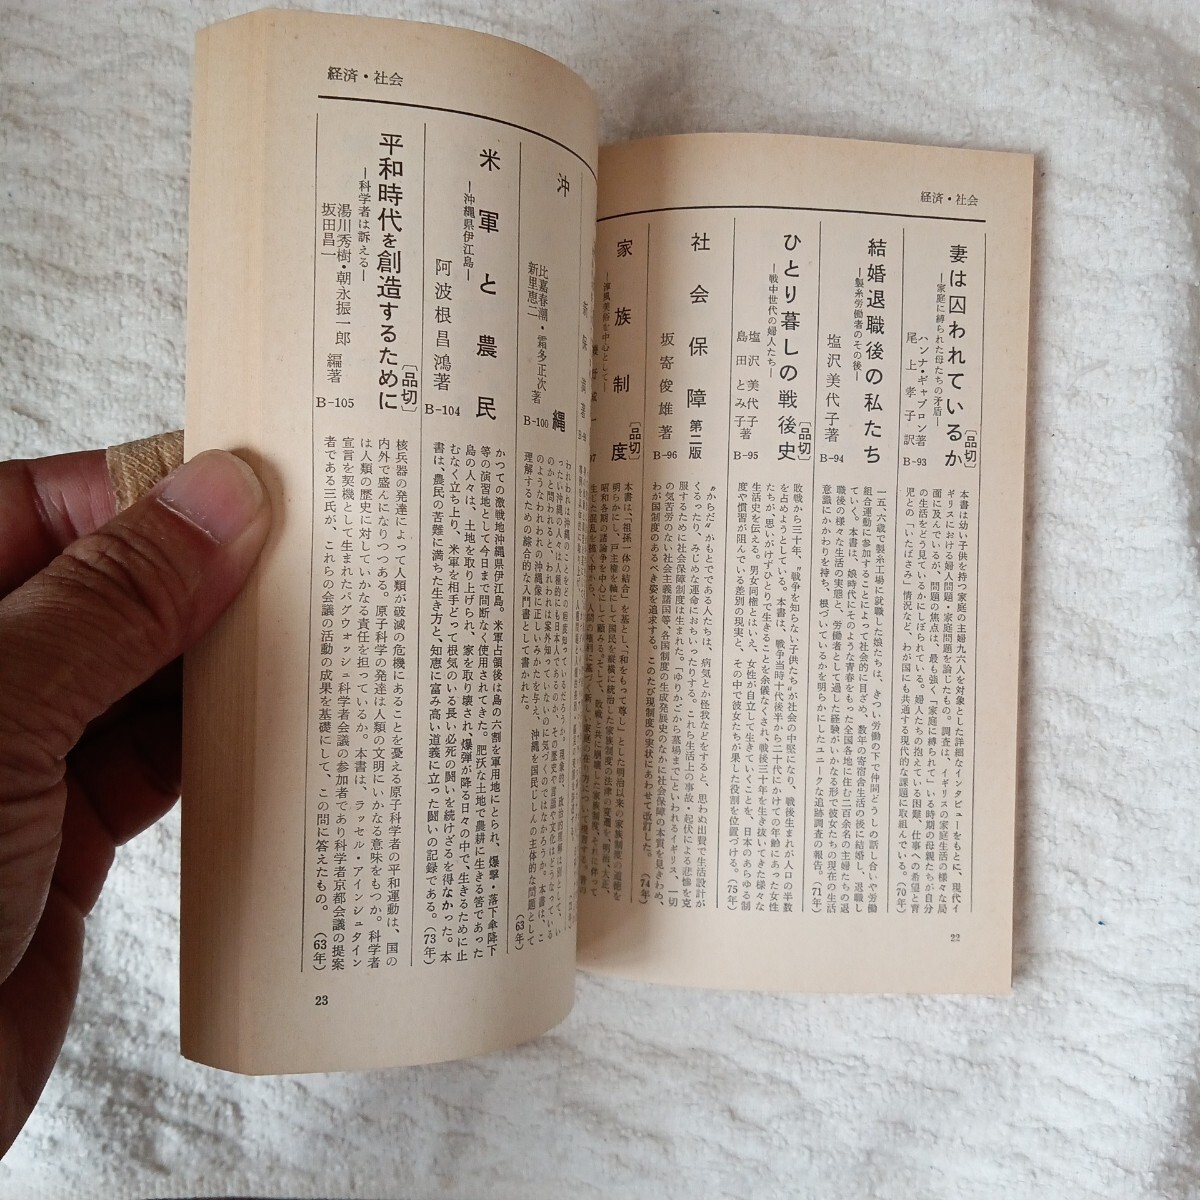 経済・社会
妻は囚われているか〔品切〕
―家庭に縛られた母たちの矛盾―
ハンナ・ギャブロン著
尾上孝子訳
B-93
本書は幼い子供を持つ家庭の主婦九六人を対象とした詳細なインタビューをもとに、現代イ
ギリスにおける婦人問題・家庭問題を論じたもの。調査は、イギリスの家庭生活の様々な局
面に及んでいるが、問題の焦点は、最も強く「家庭に縛られて」いる時期の母親たちが自分
の生活をどう見ているかにしぼられている。婦人たちの抱えている困難、仕事への希望と育
児との「いたばさみ」情況など、わが国にも共通する現代的な課題に取組んでいる。(70年)
結婚退職後の私たち
―製糸労働者のその後―
塩沢美代子著
B-94
一五、六歳で製糸工場に就職した娘たちは、きつい労働の下で仲間どうしの話し合いや労働
組合運動に参加することによって社会的に目ざめ、数年の寄宿舎生活の後に結婚し、退職し
ていく。本書は、娘時代にそのような青春をもった全国各地に住む二百余名の主婦たちの退
職後の様々な生活の実態と、労働者として過した経験がいかなる形で彼女たちの現在の生活
意識にかかわりを持ち、根づいているかを明らかにしたユニークな追跡調査の報告。(71年)
ひとり暮しの戦後史〔品切〕
―戦中世代の婦人たち―
塩沢美代子
島田とみ子著
B-95
敗戦から三十年、〝戦争を知らない子供たち〟が社会の中堅になり、戦後生まれが人口の半数
を占めようとしている。本書は、戦争当時十代後半から二十代にかけての年齢にあった女性
たちが、思いがけずひとりで生きることを余儀なくされ、戦後三十年を生き抜いてきた様々な
生活史を伝える。男女同権とはいえ、女性が自立して生きていくことを、日本のあらゆる制
度や慣習が阻んでいる差別の現実と、その中で彼女たちが果した役割を位置づける。(75年)
社会保障 第二版
坂寄俊雄著
B-96
〝からだ〟がもとでである人たちは、病気とか怪我などをすると、思わぬ出費で生活設計が
くるったり、みじめな運命におちいったりする。これら生活上の事故・起伏による悲惨を克
服するために社会保障制度は生まれた。「ゆりかごから墓場まで」といわれるイギリス、一切
の気苦労のない社会主義諸国等、各国制度の生成発展史のなかに社会保障の本質を見きわめ、
わが国制度のあるべき姿を追求する。このたび現制度の実状にあわせて改訂した。(74年)
家族制度〔品切〕
―淳風美俗を中心として―
97
本書は、「祖孫一体の結合」を基とし、「和をもって尊し」とした明治以来の家族制度の道徳を
明らかにし、戸主権を軸にして国民を縦横に統治した家族制度の法律の変遷を、明治、大正、
昭和各期の諸論争を中心にして顧みる。そして、敗戦と共に崩壊した家族制度、それに伴って
22
経済・社会
沖縄
比嘉春潮・霜多正次
新里恵二著
B-100
われわれは沖縄のことをどの程度知っているだろうか。現象的、政治的理解は別として、い
ったい沖縄の人々は人種的にも日本人であるのか、その歴史や言語や文化はどうなっている
のかと問われると、われわれは案外知っていないのに気づくのではなかろうか。本書は、こ
のようなわれわれの沖縄像に正しいみかたを与え、沖縄を国民じしんの主体的な問題として
理解するための綜合的な入門書として書かれた。(63年)
米軍と農民
―沖縄県伊江島―
阿波根昌鴻著
B-104
かつての激戦地沖縄県伊江島。米軍占領後は島の六割を軍用地にとられ、爆撃・落下傘降下
等の演習地として今日まで間断なく使用されてきた。肥沃な土地で農耕に生きる筈であった
島の人々は、土地を取り上げられ、家を取り壊され、爆弾が降る日々の中で、生きるために止
むなく立ち上り、米軍を相手どって根気のいる長い必死の闘いを続けざるを得なかった。本
書は、農民の苦難に満ちた生き方と、知恵に富み高い道義に立った闘いの記録である。(73年)
平和時代を創造するために〔品切〕
―科学者は訴える―
湯川秀樹・朝永振一郎
坂田昌一編著
B-105
核兵器の発達によって人類が破滅の危機にあることを憂える原子科学者の平和運動は、国の
内外で盛んになりつつある。原子科学の発達は人類の文明にいかなる意味をもつか。科学者
は人類の歴史に対していかなる責任を担っているか。本書は、ラッセル・アインシュタイン
宣言を契機として生まれたパグウォッシュ科学者会議の参加者であり科学者京都会議の提案
者である三氏が、これらの会議の活動の成果を基礎にして、この問に答えたもの。(63年)
23